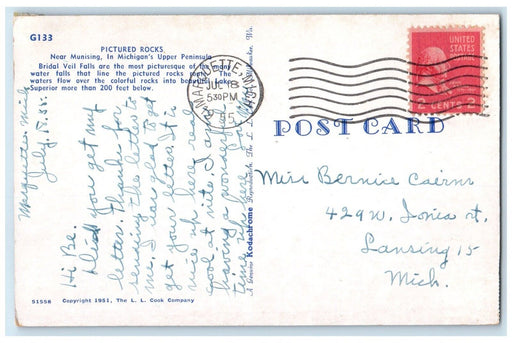 G133
PICTURED ROCKS
Near Munising, In Michigan's Upper Peninsula
Bridal Veil Falls are the most picturesque of the many
water falls that line the pictured rocks The
waters flow over the colorful rocks into beautiful Lake
Superior more than 200 feet below.
Marquette, Mich
July, 18, 55.
Hi Be.
Did you get my
letter. Thanks for
sending the letter to
me. I was glad to get
get your letter. It is
nice up here real
cool at nite. I am
having a wonderful
time up here
51558 Copyright 1951, The L. L. Cook Company
A Genuine Kodachrome Reproduction by The L. L.
MARQUETTE, MICH.
JUL 18
530PM
1955
UNITED
STATES
POSTAGE
2 CENTS 2
POST CARD
Miss Bernice Cairns
429 W. Ionia st.
Lansing 15
Mich.